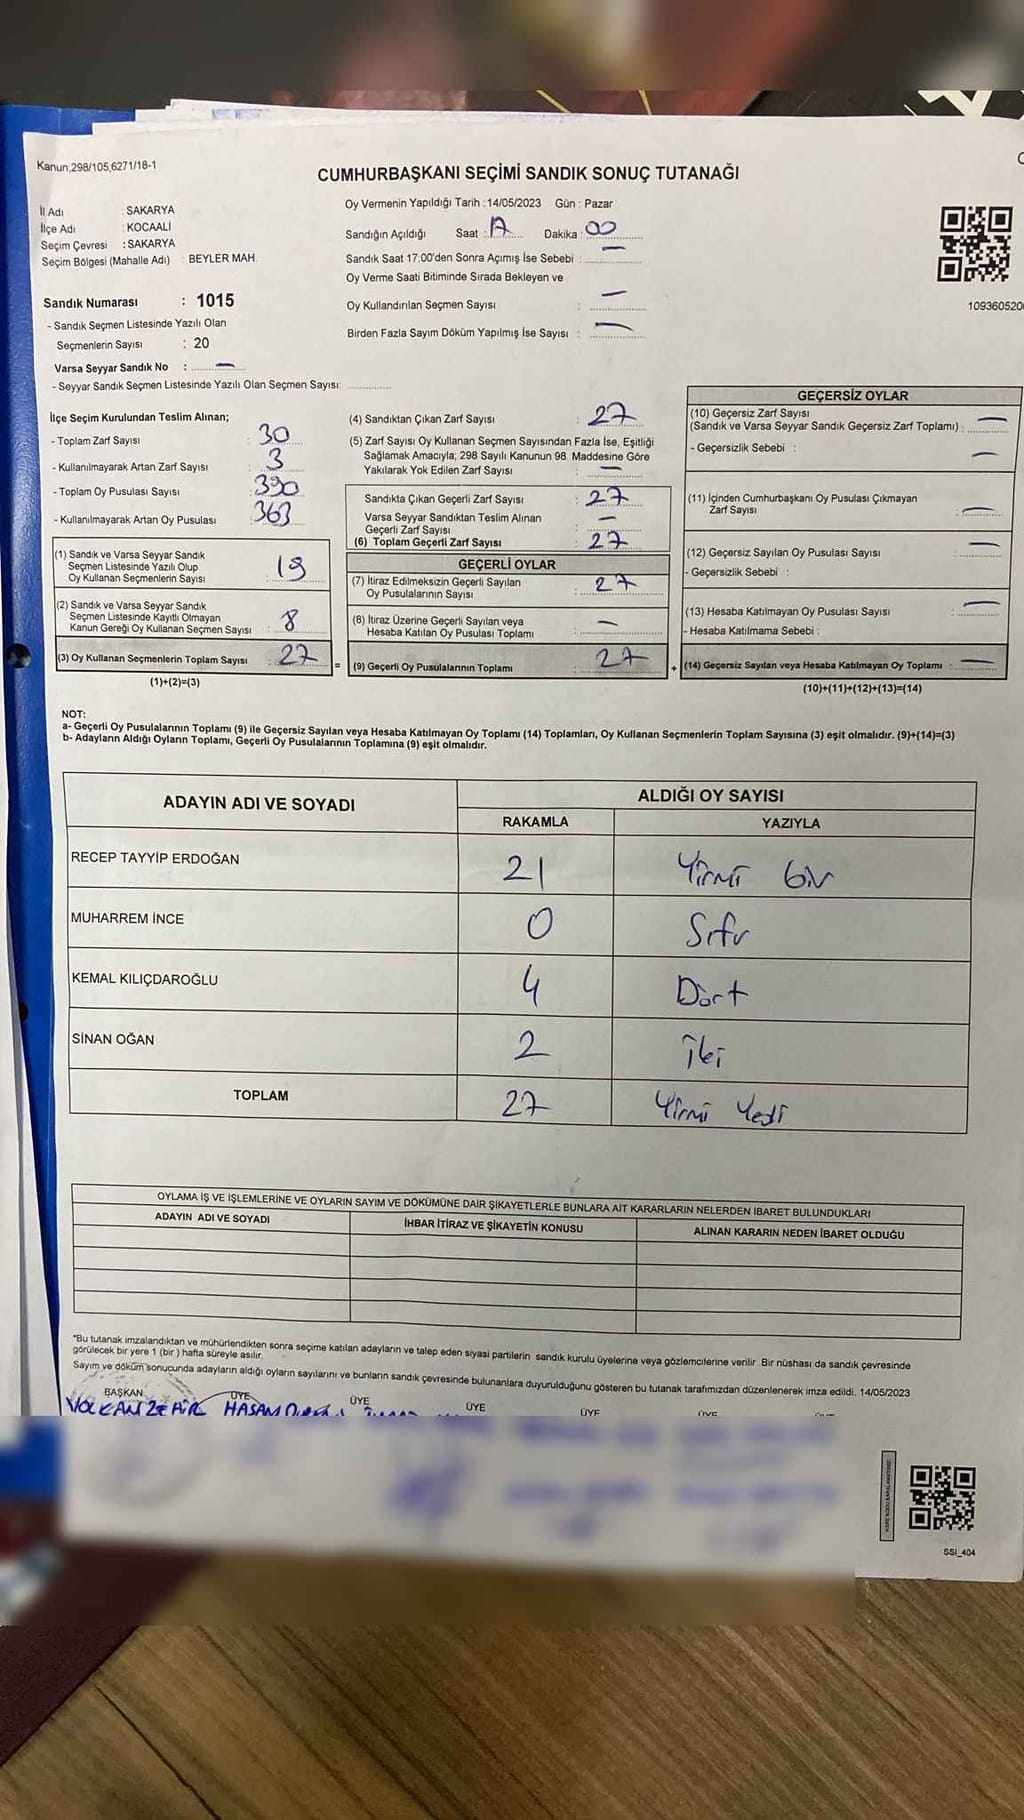 Kanun;298/105,6271/18-1
CUMHURBAŞKANI SEÇİMİ SANDIK SONUÇ TUTANAĞI
İl Adı : SAKARYA
İlçe Adı : KOCAALİ
Seçim Çevresi : SAKARYA
Seçim Bölgesi (Mahalle Adı) : BEYLER MAH.
Oy Vermenin Yapıldığı Tarih : 14/05/2023 Gün : Pazar
Sandığın Açıldığı Saat : 17 Dakika : 00
Sandık Saat 17:00'den Sonra Açımış İse Sebebi : —
Oy Verme Saati Bitiminde Sırada Bekleyen ve
Oy Kullandırılan Seçmen Sayısı : —
Birden Fazla Sayım Döküm Yapılmış İse Sayısı : —
109360520
Sandık Numarası : 1015
- Sandık Seçmen Listesinde Yazılı Olan
Seçmenlerin Sayısı : 20
Varsa Seyyar Sandık No : —
- Seyyar Sandık Seçmen Listesinde Yazılı Olan Seçmen Sayısı:
İlçe Seçim Kurulundan Teslim Alınan;
- Toplam Zarf Sayısı : 30
- Kullanılmayarak Artan Zarf Sayısı : 3
- Toplam Oy Pusulası Sayısı : 390
- Kullanılmayarak Artan Oy Pusulası : 363
(1) Sandık ve Varsa Seyyar Sandık
Seçmen Listesinde Yazılı Olup
Oy Kullanan Seçmenlerin Sayısı : 19
(2) Sandık ve Varsa Seyyar Sandık
Seçmen Listesinde Kayıtlı Olmayan
Kanun Gereği Oy Kullanan Seçmen Sayısı : 8
(3) Oy Kullanan Seçmenlerin Toplam Sayısı : 27
(1)+(2)=(3)
(4) Sandıktan Çıkan Zarf Sayısı : 27
(5) Zarf Sayısı Oy Kullanan Seçmen Sayısından Fazla İse, Eşitliği
Sağlamak Amacıyla; 298 Sayılı Kanunun 98. Maddesine Göre
Yakılarak Yok Edilen Zarf Sayısı : —
Sandıkta Çıkan Geçerli Zarf Sayısı : 27
Varsa Seyyar Sandıktan Teslim Alınan
Geçerli Zarf Sayısı : —
(6) Toplam Geçerli Zarf Sayısı : 27
GEÇERLİ OYLAR
(7) İtiraz Edilmeksizin Geçerli Sayılan
Oy Pusulalarının Sayısı : 27
(8) İtiraz Üzerine Geçerli Sayılan veya
Hesaba Katılan Oy Pusulası Toplamı : —
= (9) Geçerli Oy Pusulalarının Toplamı : 27
GEÇERSİZ OYLAR
(10) Geçersiz Zarf Sayısı
(Sandık ve Varsa Seyyar Sandık Geçersiz Zarf Toplamı) : —
- Geçersizlik Sebebi : —
(11) İçinden Cumhurbaşkanı Oy Pusulası Çıkmayan
Zarf Sayısı : —
(12) Geçersiz Sayılan Oy Pusulası Sayısı : —
- Geçersizlik Sebebi :
(13) Hesaba Katılmayan Oy Pusulası Sayısı : —
- Hesaba Katılmama Sebebi :
+ (14) Geçersiz Sayılan veya Hesaba Katılmayan Oy Toplamı : —
(10)+(11)+(12)+(13)=(14)
NOT:
a- Geçerli Oy Pusulalarının Toplamı (9) ile Geçersiz Sayılan veya Hesaba Katılmayan Oy Toplamı (14) Toplamları, Oy Kullanan Seçmenlerin Toplam Sayısına (3) eşit olmalıdır. (9)+(14)=(3)
b- Adayların Aldığı Oyların Toplamı, Geçerli Oy Pusulalarının Toplamına (9) eşit olmalıdır.
ADAYIN ADI VE SOYADI ALDIĞI OY SAYISI
RAKAMLA YAZIYLA
RECEP TAYYİP ERDOĞAN 21 Yirmi bir
MUHARREM İNCE 0 Sıfır
KEMAL KILIÇDAROĞLU 4 Dört
SİNAN OĞAN 2 İki
TOPLAM 27 Yirmi Yedi
OYLAMA İŞ VE İŞLEMLERİNE VE OYLARIN SAYIM VE DÖKÜMÜNE DAİR ŞİKAYETLERLE BUNLARA AİT KARARLARIN NELERDEN İBARET BULUNDUKLARI
ADAYIN ADI VE SOYADI İHBAR İTİRAZ VE ŞİKAYETİN KONUSU ALINAN KARARIN NEDEN İBARET OLDUĞU
*Bu tutanak imzalandıktan ve mühürlendikten sonra seçime katılan adayların ve talep eden siyasi partilerin sandık kurulu üyelerine veya gözlemcilerine verilir. Bir nüshası da sandık çevresinde
görülecek bir yere 1 (bir ) hafta süreyle asılır.
Sayım ve döküm sonucunda adayların aldığı oyların sayılarını ve bunların sandık çevresinde bulunanlara duyurulduğunu gösteren bu tutanak tarafımızdan düzenlenerek imza edildi. 14/05/2023
BAŞKAN ÜYE ÜYE ÜYE ÜYE ÜYE
VOLKAN HASAN
SSI_404